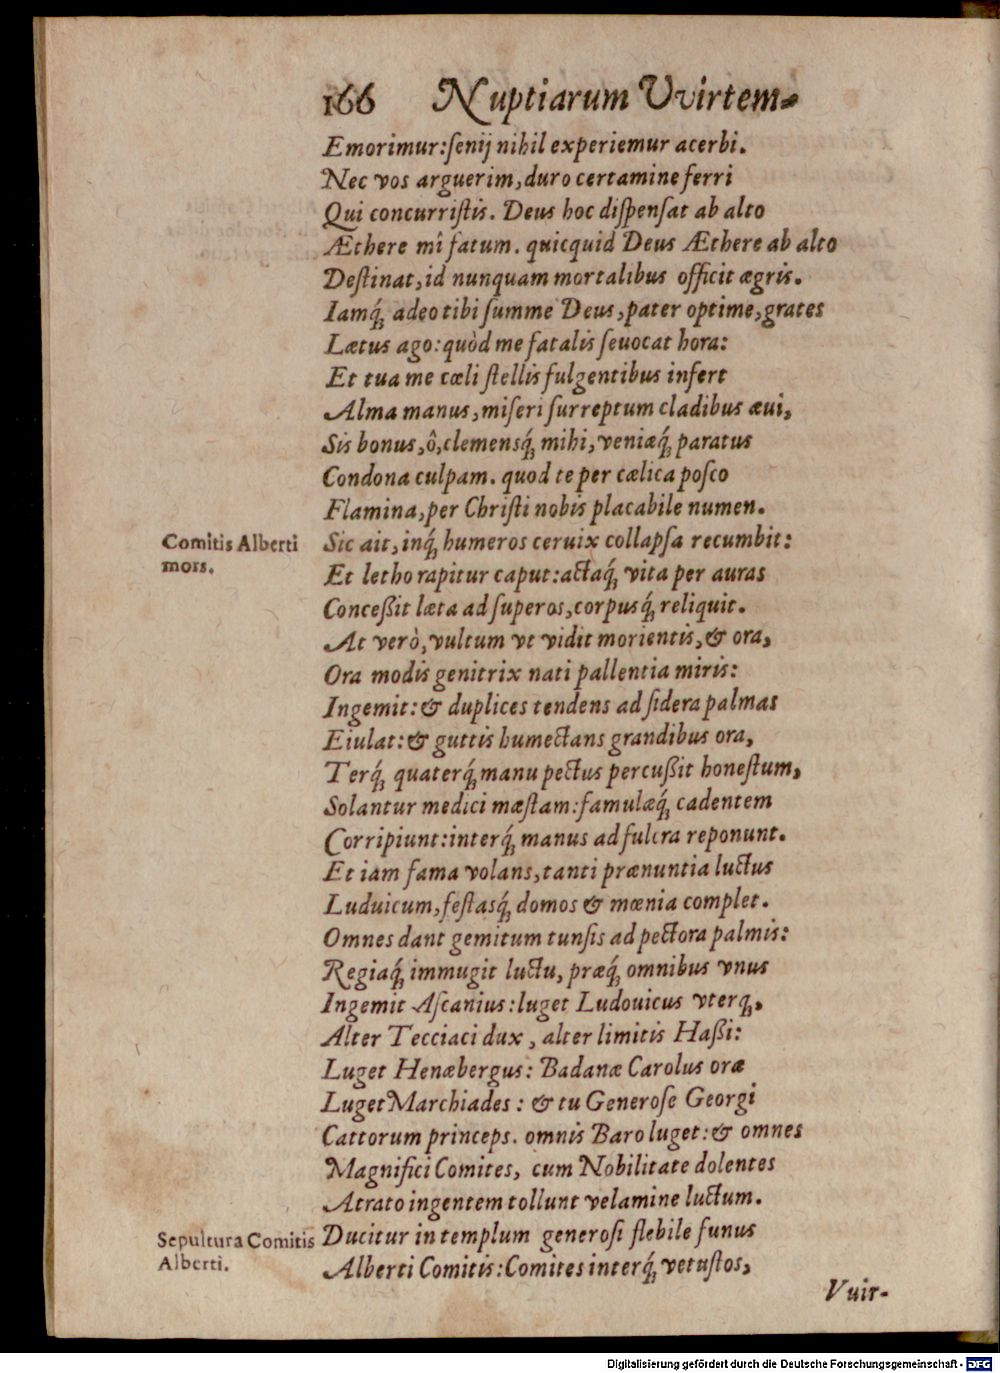 166 Nuptiarum Vvirtem-
Emorimur: ſenij nihil experiemur acerbi.
Nec vos arguerim, duro certamine ferri
Qui concurriſtis. Deus hoc diſpenſat ab alto
Æthere mî fatum. quicquid Deus Æthere ab alto
Deſtinat, id nunquam mortalibus officit ægris.
Iamq́; adeo tibi ſumme Deus, pater optime, grates
Lætus ago: quòd me fatalis ſeuocat hora:
Et tua me cœli ſtellis fulgentibus infert
Alma manus, miſeri ſurreptum cladibus æui,
Sis bonus, ô, clemensq́; mihi, veniæq́; paratus
Condona culpam. quod te per cælica poſco
Flamina, per Chriſti nobis placabile numen.
Comitis Alberti mors.
Sic ait, inq́; humeros ceruix collapſa recumbit:
Et letho rapitur caput: actaq́; vita per auras
Conceßit læta ad ſuperos, corpusq́; reliquit.
At verò, vultum vt vidit morientis, & ora,
Ora modis genitrix nati pallentia miris:
Ingemit: & duplices tendens ad ſidera palmas
Eiulat: & guttis humectans grandibus ora,
Terq́; quaterq́; manu pectus percußit honeſtum,
Solantur medici mæſtam: famulæq́; cadentem
Corripiunt: interq́; manus ad fulcra reponunt.
Et iam fama volans, tanti prænuntia luctus
Luduicum, feſtasq́; domos & mœnia complet.
Omnes dant gemitum tunſis ad pectora palmis:
Regiaq́; immugit luctu, præq́; omnibus vnus
Ingemit Aſcanius: luget Ludouicus vterq;,
Alter Tecciaci dux, alter limitis Haßi:
Luget Henæbergus: Badanæ Carolus oræ
Luget Marchiades: & tu Generoſe Georgi
Cattorum princeps. omnis Baro luget: & omnes
Magnifici Comites, cum Nobilitate dolentes
Atrato ingentem tollunt velamine luctum.
Sepultura Comitis Alberti.
Ducitur in templum generoſi flebile funus
Alberti Comitis: Comites interq́; vetuſtos,
Vuir-
Digitalisierung gefördert durch die Deutsche Forschungsgemeinschaft - DFG